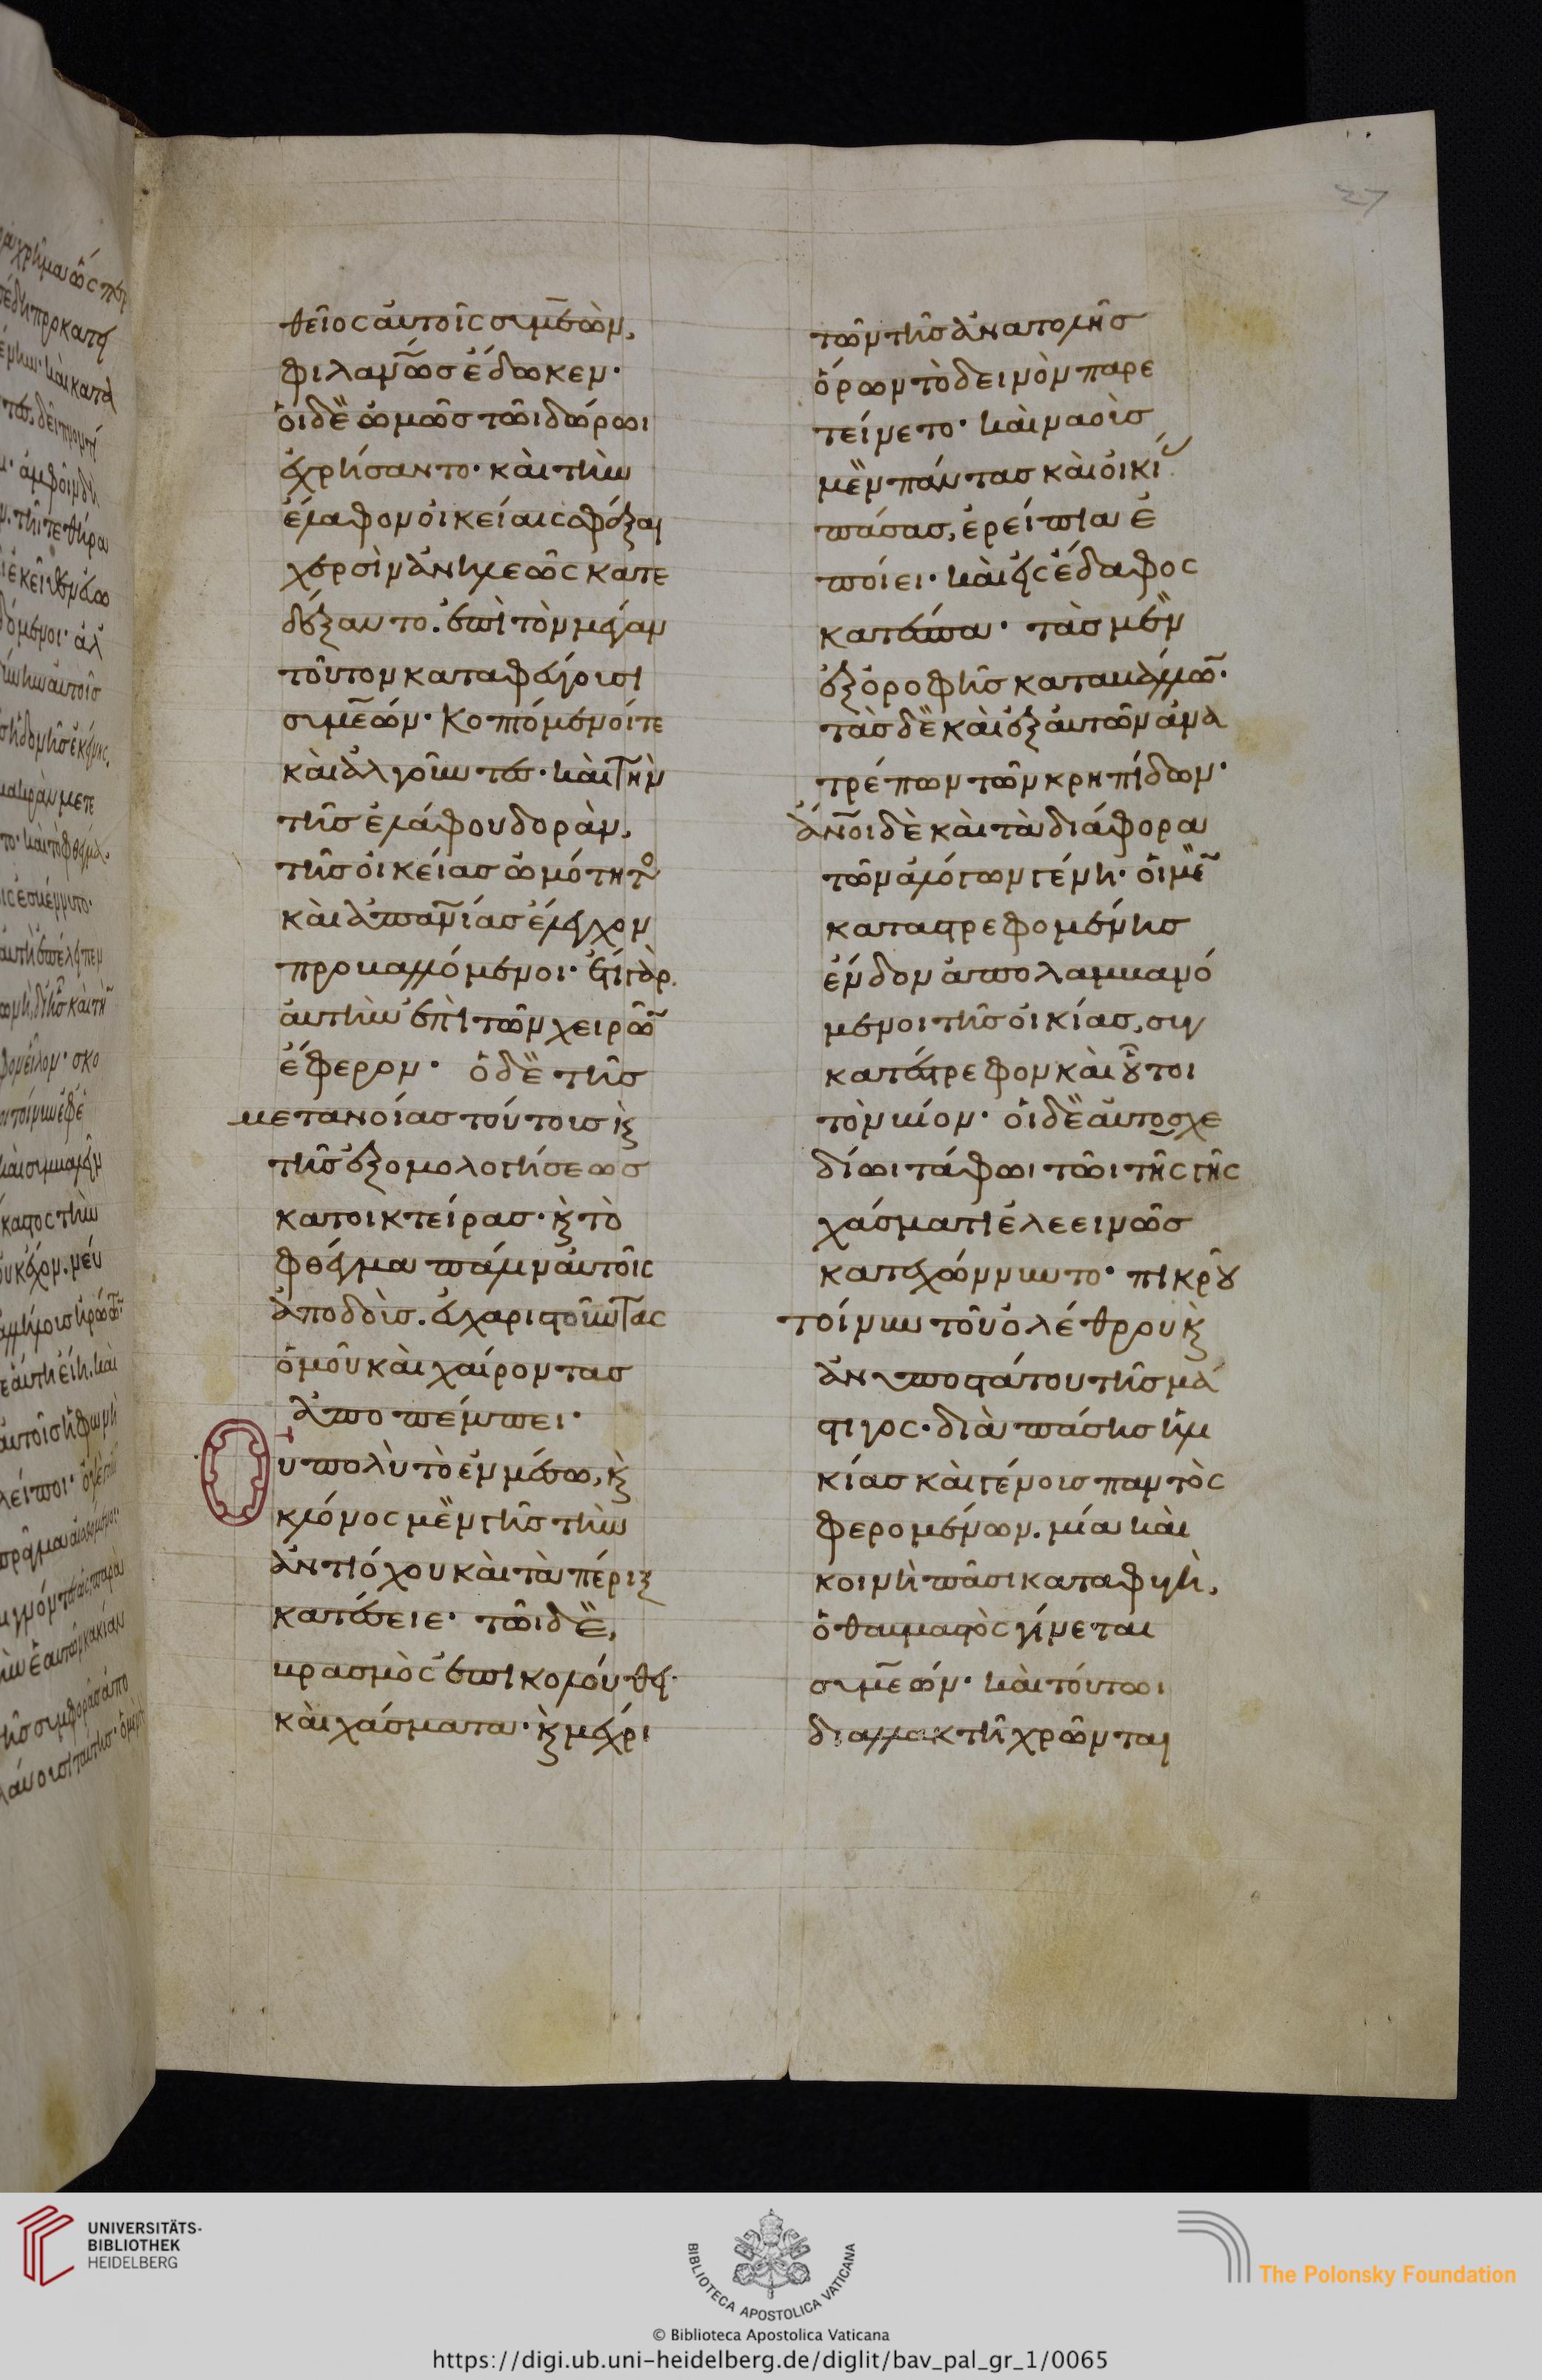 27
θεῖος αὐτοῖς συμεὼν,
φιλαν̅ως ἔδωκεν·
οἱ δὲ ὠμῶς τῶι δώρωι
ἐχρήσαντο· καὶ τὴν
ἔλαφον οἰκείαις σφάξαι
χερσὶν ἀνηλεῶς κατε
δέξαντο. ἐπὶ τὸν μέγαν
τοῦτον καταφεύγουσι
συμεών· κοπτόμενοί τε
καὶ ἀλγοῦντες· καὶ τὴν
τῆς ἐλάφου δορὰν,
τῆς οἰκείας ὠμότητο
καὶ ἀπαν̅ίας ἔλεγχον
προκαλλόμενοι· ἔτι γὰρ
αὐτὴν ἐπὶ τῶν χειρῶ
ἔφερον· ὁ δὲ τῆς
μετανοίας τούτους κ
τῆς ἐξομολογήσεως
κατοικτείρας· κ τὸ
φθέγμα πάλιν αὐτοῖς
ἀποδοὺς. εὐχαριστοῦντας
ὁμοῦ καὶ χαίροντας
ἀποπέμπει·
Οὐ πολὺ τὸ ἐν μέσω, κ
κλόνος μὲν γῆς τὴν
ἀντιόχου καὶ τὰ πέριξ
κατέσειε· τῶι δὲ,
βρασμὸς ἐπικολούθει·
καὶ χάσματα· κ μέχρι
τῶν τῆς ἀνατολῆς
ὅρων τὸ δεινὸν παρε
τείνετο· καὶ ναοὺς
μὲν πάντας καὶ οἰκί
πάσας, ἐρείπια ἐ
ποίει· καὶ εἰς ἔδαφος
κατέσπα· τὰς μὲν
ἐξ ὀροφῆς καταβάλλω·
τὰς δὲ καὶ ἐξ αὐτῶν ἀνα
τρέπων τῶν κρηπίδων·
ἀν̅οι δὲ καὶ τὰ διάφορα
τῶν ἀλόγων γένη· οἱ μὲ
καταστρεφομένης
ἔνδον ἀπολαμβανό
μενοι τῆς οἰκίας, συγ
κατέστρεφον καὶ οὗτοι
τὸν βίον· οἱ δὲ αὐτοσχε
δίωι τάφωι τῶι τῆς γῆς
χάσματι ἐλεεινῶς
κατεχώννυντο· πικροῦ
τοίνυν τοῦ ὀλέθρου κ
ἀνυποστάτου τῆς μά
στιγος· διὰ πάσης ἡλι
κίας καὶ γένους παντὸς
φερομένων. μία καὶ
κοινὴ πᾶσι καταφυγὴ,
ὁ θαυμαστὸς γίνεται
συμεών· καὶ τούτωι
διαλλακτῆ χρῶνται
UNIVERSITÄTS-
BIBLIOTHEK
HEIDELBERG
BIBLIOTECA APOSTOLICA VATICANA
The Polonsky Foundation
© Biblioteca Apostolica Vaticana
https://digi.ub.uni-heidelberg.de/diglit/bav_pal_gr_1/0065